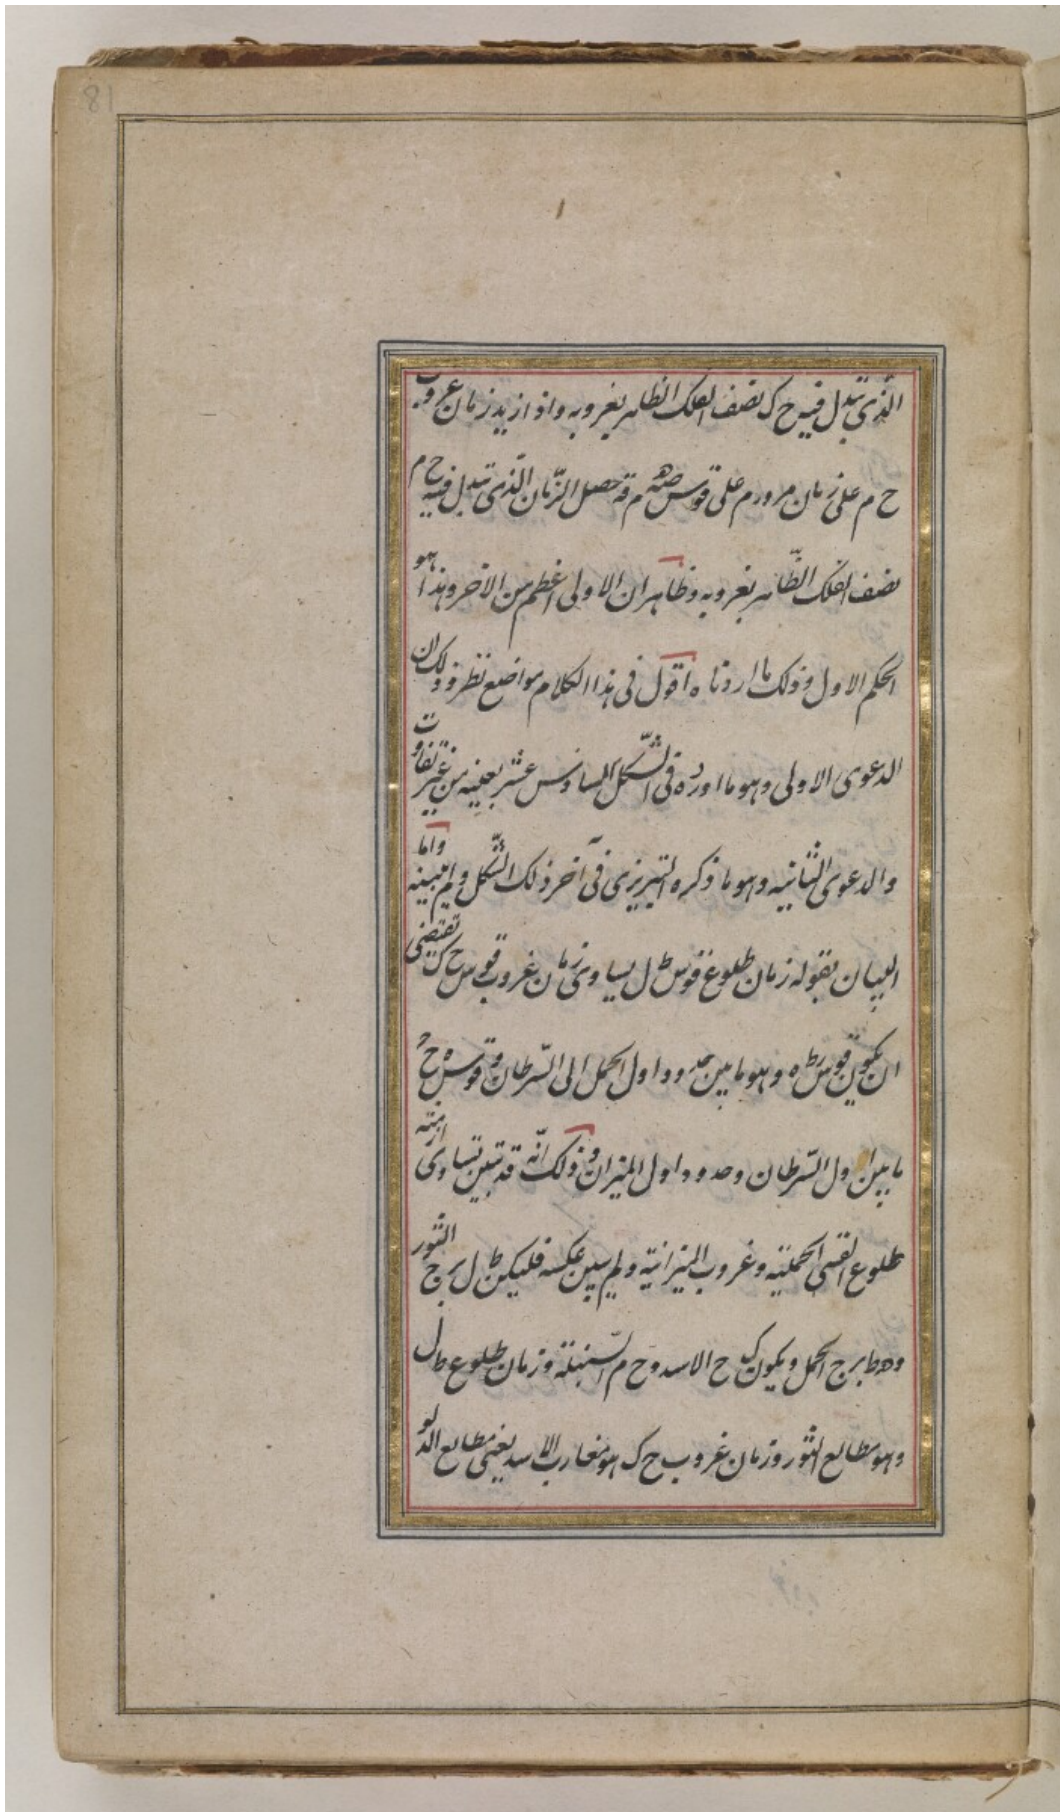 81
الذی تبدل فیه ح ک نصف الفلک الظاهر بغروبه واذا زید زمان غروب
ح م علی زمان مرور م علی قوس م قه حصل الزّمان الّذی تبدل فیه ح م
نصف الفلک الظّاهر بغروبه وظاهر ان الاولی اعظم من الاخر وهذا هو
الحکم الاول وذلک ما اردناه اقول فی هذا الکلام مواضع نظر وذلک ان
الدعوی الاولی وهو ما اورده فی الشّکل السادس عشر بعینه من غیر تفاوت
والدعوی الثانیه وهو ما ذکره التبریزی فی آخر ذلک الشّکل ولم یبینه واما
البیان بقوله زمان طلوع قوس ط ل یساوی زمان غروب قوس ح ک تقتضی
ان یکون قوس ط ه وهو ما بین حدود اول الحمل الی السّرطان وقوس ه ح
ما بین اول السّرطان وحدود اول المیزان وذلک انّه قد تبین تساوی ازمنة
طلوع القسی الحملیّه وغروب المیزانیّه ولم یبین عکسه فلیکن ط ل برج الثور
وه ط برج الحمل ویکون ک ح الاسد وح م السّنبلة وزمان طلوع ط ل
وهو مطالع الثور وزمان غروب ح ک هو مغارب الاسد یعنی مطالع الدلو